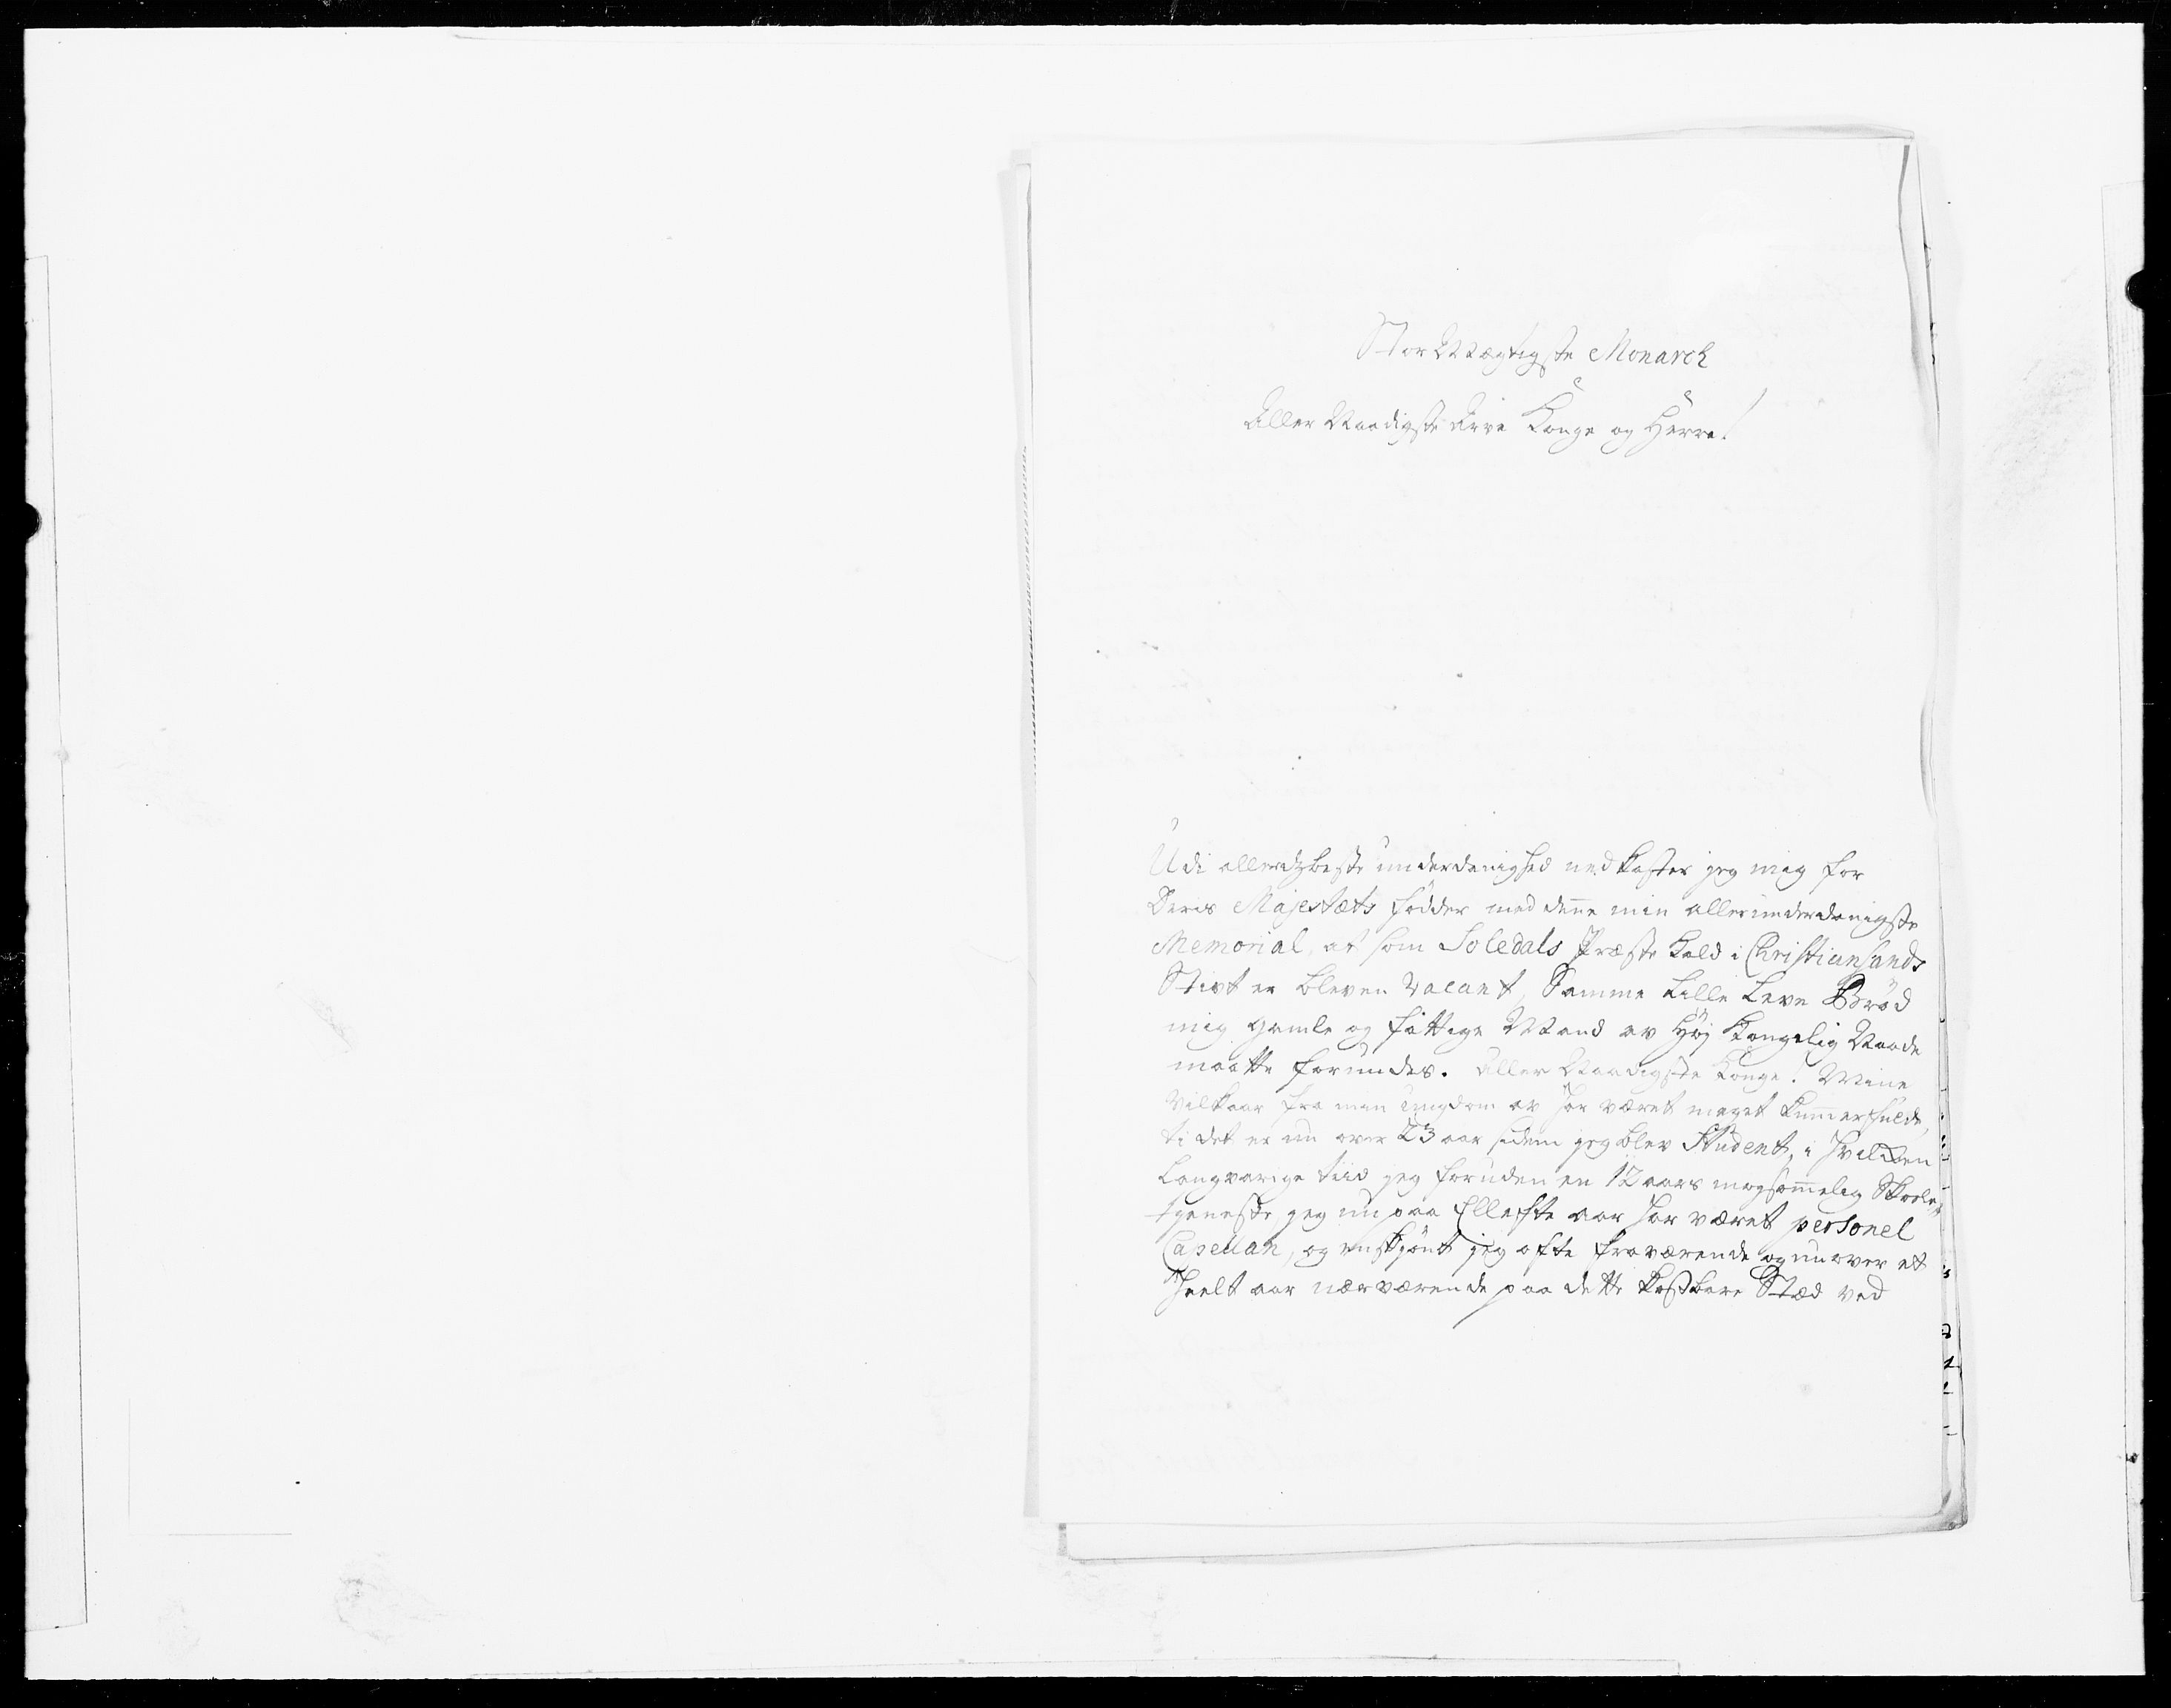 StorMægtigste Monarch
Aller Naadigste Arve Konge og Herre!
Udi allerdybeste underdanighed nedkaster jeg mig for
Deris Majestæts födder med denne min allerunderdanigste
Memorial, at som Soledals Præste Kald i Christiansands
Stivt er bleven vacant, Samme lille Leve Bröd
mig gamle og fattige Mand av Höj Kongelig Naade
maatte forundes. Aller Naadigste Konge! Mine
Vilkaar fra min ungdom av har været meget kummerfulde,
ti det er nu over 23 aar siden jeg blev Student, i hvilken
langvarige tiid jeg foruden en 12 aars møysommelig Skoele
tjeneste jeg nu paa Ellefte aar har været personel
Capellan, og enskjönt jeg ofte fraværende og nu over et
heelt aar nærværende paa dette kostbare Stæd ved